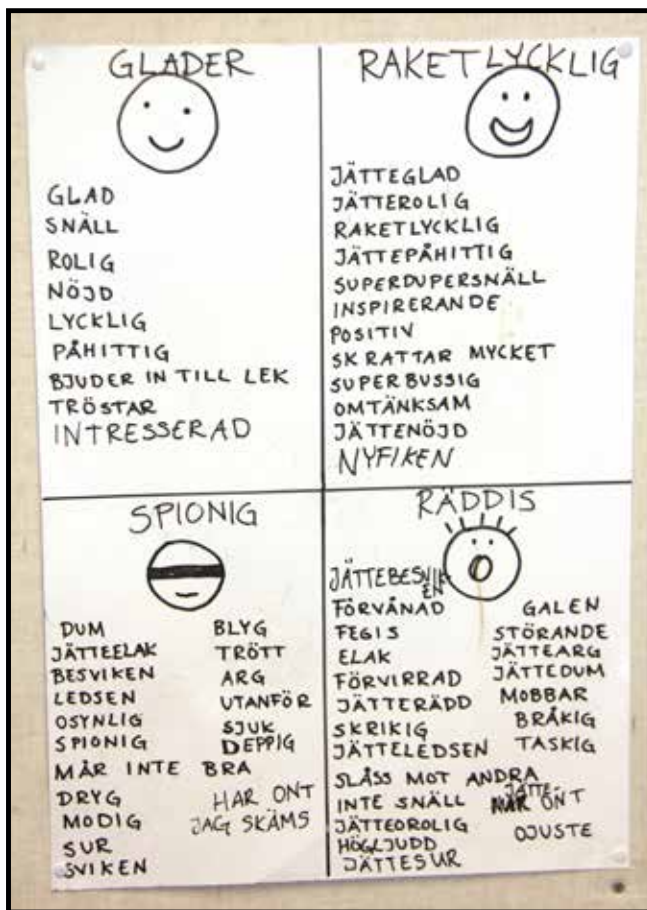 GLADER
GLAD
SNÄLL
ROLIG
NÖJD
LYCKLIG
PÅHITTIG
BJUDER IN TILL LEK
TRÖSTAR
INTRESSERAD
RAKETLYCKLIG
JÄTTEGLAD
JÄTTEROLIG
RAKETLYCKLIG
JÄTTEPÅHITTIG
SUPERDUPERSNÄLL
INSPIRERANDE
POSITIV
SKRATTAR MYCKET
SUPERBUSSIG
OMTÄNKSAM
JÄTTENÖJD
NYFIKEN
SPIONIG
DUM
JÄTTEELAK
BESVIKEN
LEDSEN
OSYNLIG
SPIONIG
MÅR INTE BRA
DRYG
MODIG
SUR
SVIKEN
BLYG
TRÖTT
ARG
UTANFÖR
SJUK
DEPPIG
HAR ONT
JAG SKÄMS
RÄDDIS
JÄTTEBESVIK-
EN
FÖRVÅNAD
FEGIS
ELAK
FÖRVIRRAD
JÄTTERÄDD
SKRIKIG
JÄTTELEDSEN
SLÅSS MOT ANDRA
INTE SNÄLL
JÄTTEOROLIG
HÖGLJUDD
JÄTTESUR
GALEN
STÖRANDE
JÄTTEARG
JÄTTEDUM
MOBBAR
BRÅKIG
TASKIG
JÄTTE-
ONT
OJUSTE